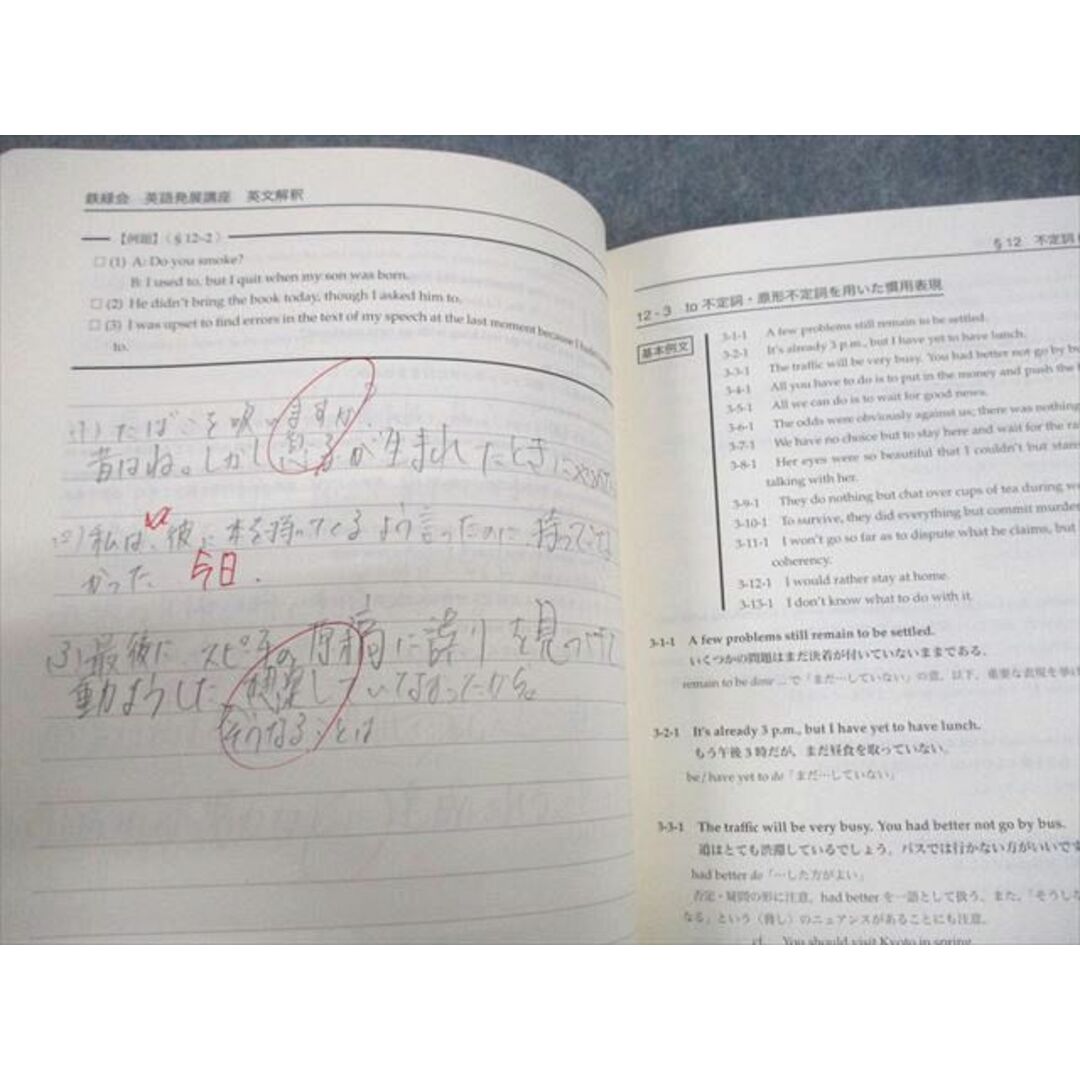 鉄緑会 英語発展講座 英文解釈
【例題】(§12-2)
□ (1) A: Do you smoke?
B: I used to, but I quit when my son was born.
□ (2) He didn't bring the book today, though I asked him to.
□ (3) I was upset to find errors in the text of my speech at the last moment because I
to.
(1) たばこを吸いますか?
昔はね。しかし が生まれたときに
(2) 私は、彼に本を持ってくるよう言ったのに、持って
かった 今日.
(3) 最後に、スピーチの原稿に誤りを見つけて
動ようした。 していてなかったから。
そうなることは
§12 不定詞
12-3 to 不定詞・原形不定詞を用いた慣用表現
基本例文
3-1-1 A few problems still remain to be settled.
3-2-1 It's already 3 p.m., but I have yet to have lunch.
3-3-1 The traffic will be very busy. You had better not go by
3-4-1 All you have to do is to put in the money and push the
3-5-1 All we can do is to wait for good news.
3-6-1 The odds were obviously against us; there was nothing
3-7-1 We have no choice but to stay here and wait for the
3-8-1 Her eyes were so beautiful that I couldn't but
talking with her.
3-9-1 They do nothing but chat over cups of tea during
3-10-1 To survive, they did everything but commit murder
3-11-1 I won't go so far as to dispute what he claims, but
coherency.
3-12-1 I would rather stay at home.
3-13-1 I don't know what to do with it.
3-1-1 A few problems still remain to be settled.
いくつかの問題はまだ決着が付いていないままである。
remain to be done ...で「まだ…していない」の意。以下、重要な表現を挙げ
3-2-1 It's already 3 p.m., but I have yet to have lunch.
もう午後3時だが、まだ昼食を取っていない。
be/have yet to do「まだ…していない」
3-3-1 The traffic will be very busy. You had better not go by bus.
道はとても渋滞しているでしょう。バスでは行かない方がいいです
had better do「…した方がよい」
否定・疑問の形に注意。had better を一語として扱う。また、「そうしな
なる」という〈脅し〉のニュアンスがあることにも注意。
cf. You should visit Kyoto in spring.